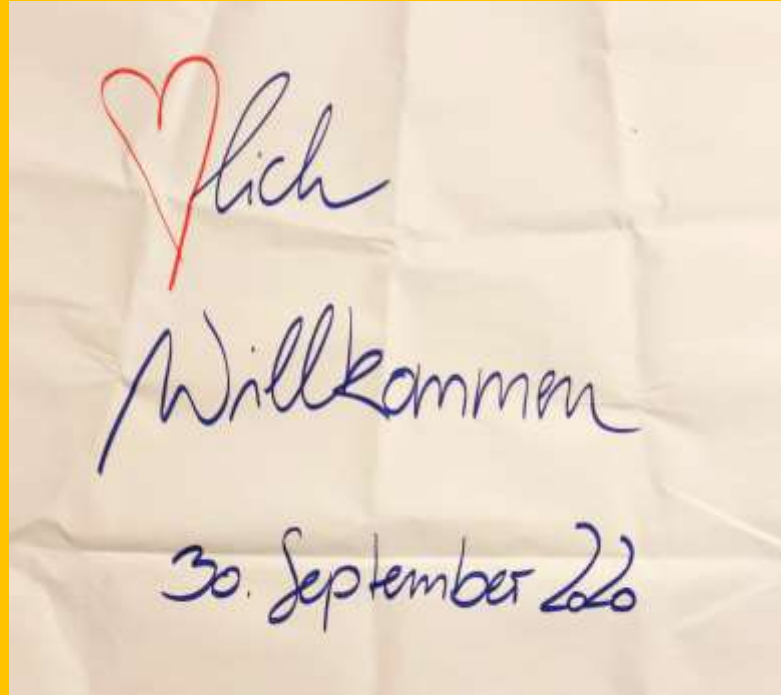 ♡lich
Willkommen
30. September 2020